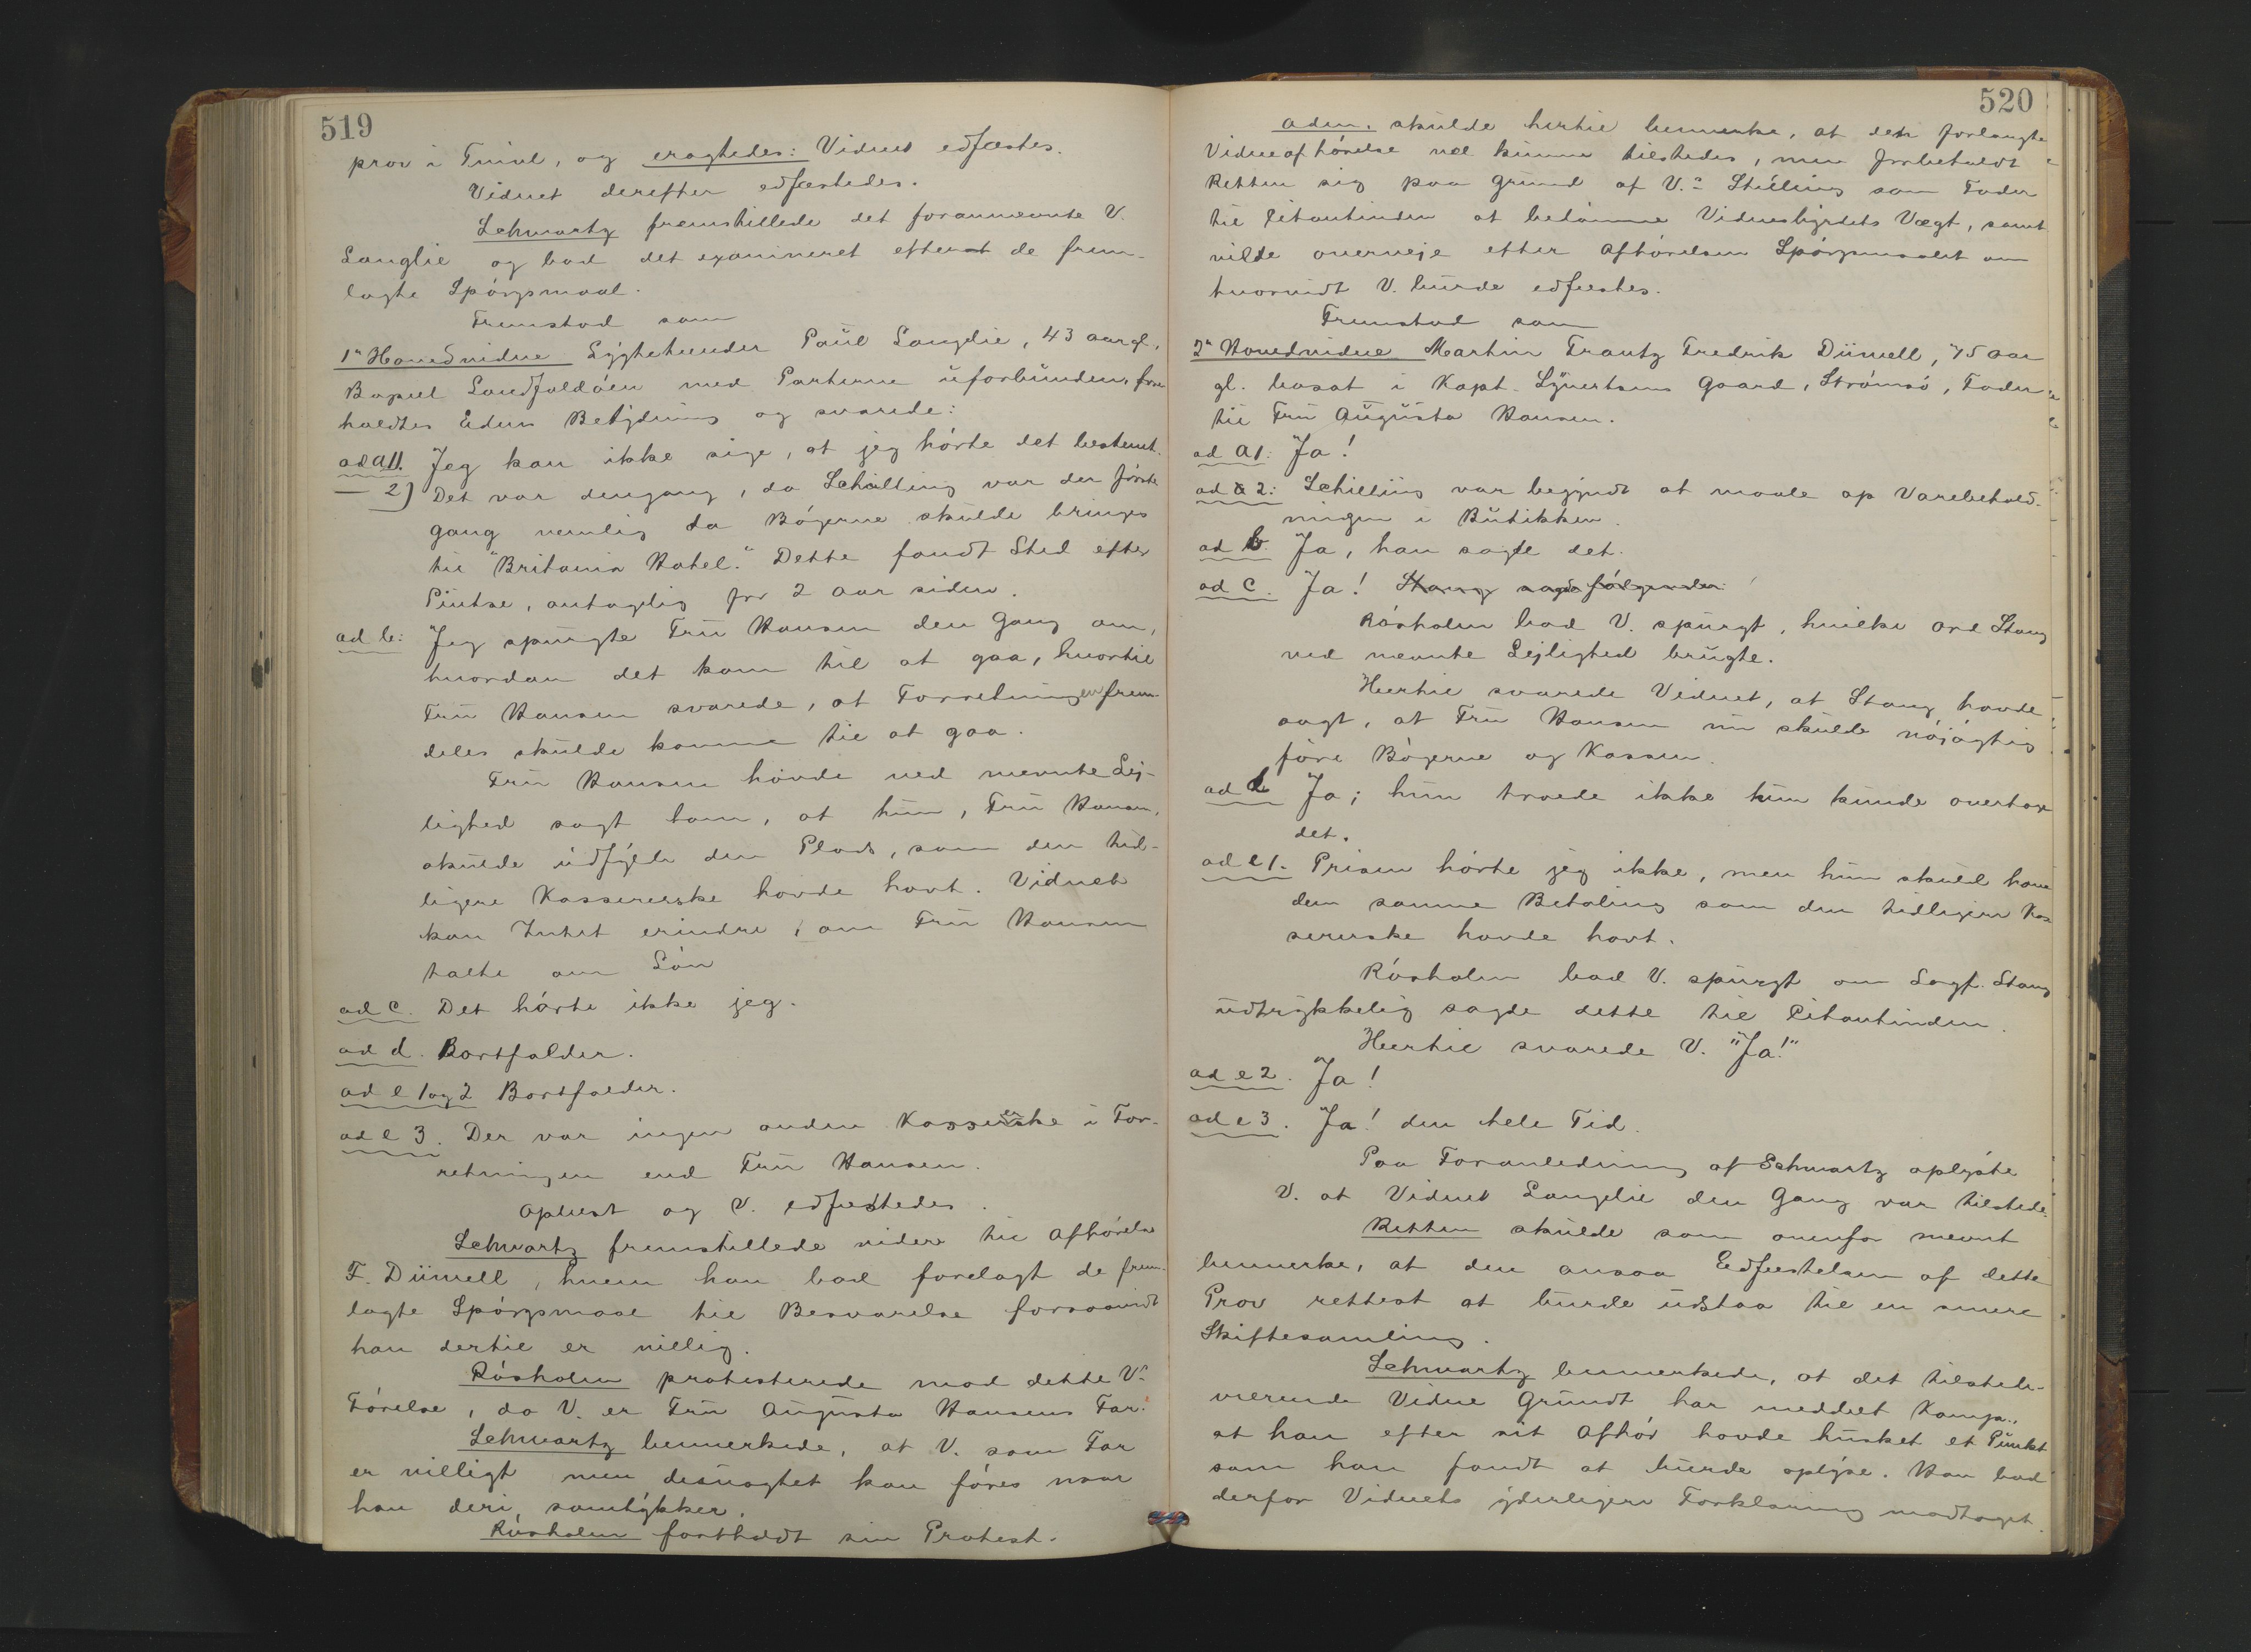 519
prov i Tvivl, og eragtedes: Vidnet edfæstes.
Vidnet derefter edfæstedes.
Schwartz fremstillede det forannævnte V.
Langlie og bad det examineret efter de frem-
lagte Spörgsmaal.
Fremstod som
1ste Hovedvidne Lygtetænder Paul Langlie, 43 aar gl.,
Bopæl Landfaldöen med Parterne uforbunden, fore-
holdtes Edens Betydning og svarede:
ad a 1). Jeg kan ikke sige, at jeg hörte det bestemt.
— 2) Det var dengang, da Schilling var der förste
gang nemlig da Bögerne skulde bringes
til "Britania Hotel". Dette fandt Sted efter
Pintse, antagelig for 2 Aar siden.
ad b: Jeg spurgte Fru Hansen den Gang om,
hvordan det kom til at gaa, hvortil
Fru Hansen svarede, at Forretningen frem-
deles skulde komme til at gaa.
Fru Hansen havde ved nævnte Lej-
lighed sagt ham, at hun, Fru Hansen,
skulde udfylde den Plads, som den tid-
ligere Kassererske havde havt. Vidnet
kan Intet erindre, om Fru Hansen
talte om Lön
ad c. Det hörte ikke jeg.
ad d. Bortfalder.
ad e 1 og 2 Bortfalder.
ad e 3. Der var ingen anden Kassererske i For-
retningen end Fru Hansen.
Oplæst og V. edfæstedes.
Schwartz fremstillede videre til Afhörelse
F. Düwell, hvem han bad forelagt de frem-
lagte Spörgsmaal til Besvarelse forsaavidt
han dertil er villig.
Rösholm protesterede mod dette V.s
Förelse, da V. er Fru Augusta Hansens Far.
Schwartz bemerkede, at V. som Far
er villigt men desuagtet kan föres naar
han deri samtykker.
Rösholm fastholdt sin Protest.
520
Adm. skulde hertil bemerke, at den forlangte
Vidneafhörelse vel kunne tilstedes, men forbeholdt
Retten sig paa Grund af V.s Stilling som Fader
til Citantinden at bedömme Vidnesbyrdets Vægt, samt
vilde overveje efter Afhörelsen Spörgsmaalet om
hvorvidt V. burde edfæstes.
Fremstod som
2det Hovedvidne Martin Frantz Fredrik Düwell, 75 aar
gl. bosat i Kapt. Syvertsens Gaard, Strömsö, Fader
til Fru Augusta Hansen.
ad a 1: Ja!
ad a 2: Schilling var begyndt at maale op Varebehold-
ningen i Butikken.
ad b. Ja, han sagde det.
ad c. Ja! Stang sagde fölgende:
Rösholm bad V. spurgt, hvilke Ord Stang
ved nævnte Lejlighed brugte.
Hertil svarede Vidnet, at Stang havde
sagt, at Fru Hansen nu skulde nöjagtig
före Bögerne og Kassen.
ad d Ja; hun troede ikke hun kunde overtage
det.
ad e 1. Prisen hörte jeg ikke, men hun skulde have
den samme Betaling som den tidligere Kas-
sererske havde havt.
Rösholm bad V. spurgt om Sagf. Stang
udtrykkelig sagde dette til Citantinden.
Hertil svarede V. "Ja!"
ad e 2. Ja!
ad e 3. Ja! den hele Tid.
Paa Foranledning af Schwartz oplyste
V. at Vidnet Langlie den Gang var tilstede.
Retten skulde som ovenfor nævnt
bemerke, at den ansaa Edfæstelsen af dette
Prov rettest at burde udstaa til en senere
Skiftesamling.
Schwartz bemerkede, at det tilstede-
værende Vidne Grundt har meddelt Komp.,
at han efter sit Afhör havde husket et Punkt
som han fandt at burde oplyse. Han bad
derfor Vidnets yderligere Forklaring modtaget.